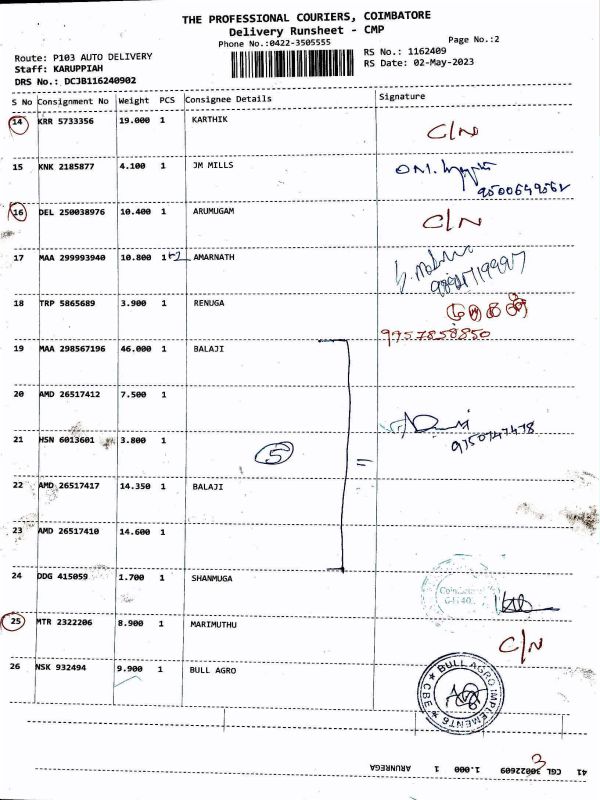 THE PROFESSIONAL COURIERS, COIMBATORE
Delivery Runsheet - CMP
Phone No.:0422-3505555
Page No.:2
Route: P103 AUTO DELIVERY
Staff: KARUPPIAH
DRS No.: DCJB116240902
RS No.: 1162409
RS Date: 02-May-2023
S No Consignment No Weight PCS Consignee Details Signature
14 KRR 5733356 19.000 1 KARTHIK C/N
15 KNK 2185877 4.100 1 JM MILLS
16 DEL 250038976 10.400 1 ARUMUGAM C/N
17 MAA 299993940 10.800 1 AMARNATH
18 TRP 5865689 3.900 1 RENUGA
9757858850
19 MAA 298567196 46.000 1 BALAJI
20 AMD 26517412 7.500 1
21 HSN 6013601 3.800 1 5 =
9750747478
22 AMD 26517417 14.350 1 BALAJI
23 AMD 26517410 14.600 1
24 DDG 415059 1.700 1 SHANMUGA
25 MTR 2322206 8.900 1 MARIMUTHU C/N
26 NSK 932494 9.900 1 BULL AGRO
BULL AGRO IMPLEMENTS
CBE
3
41 CGL 300022609 1.000 1 ARUNREGA